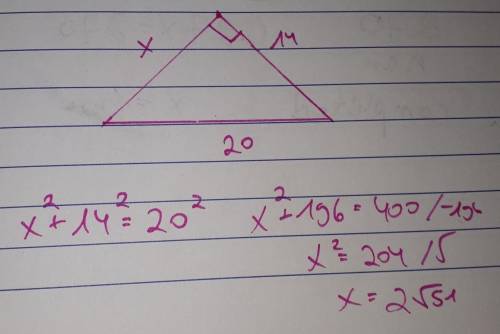 x 14
20
x² + 14² = 20² x² + 196 = 400 /-196
x² = 204 /√
x = 2√51